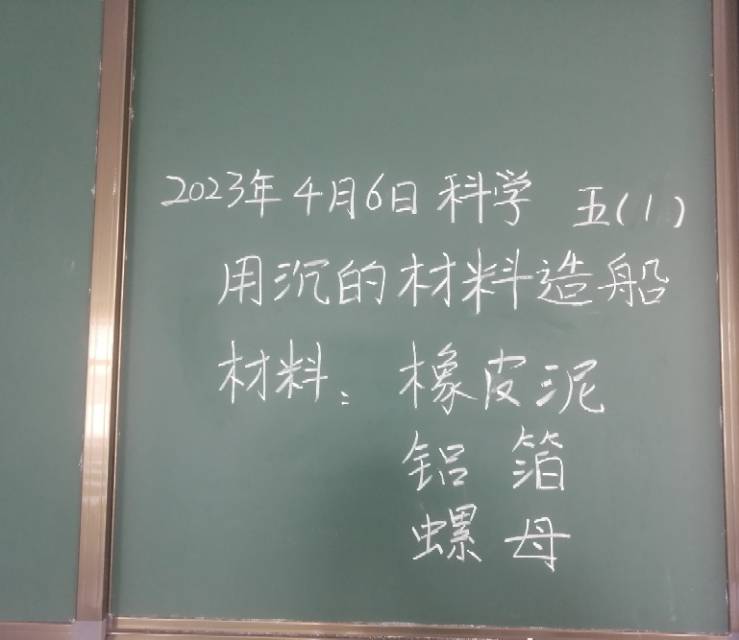 2023年4月6日 科学 五(1)
用沉的材料造船
材料：橡皮泥
铝箔
螺母